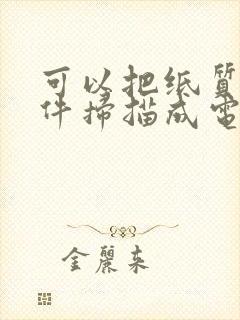 可以把纸质
件扫描成電
金麗来